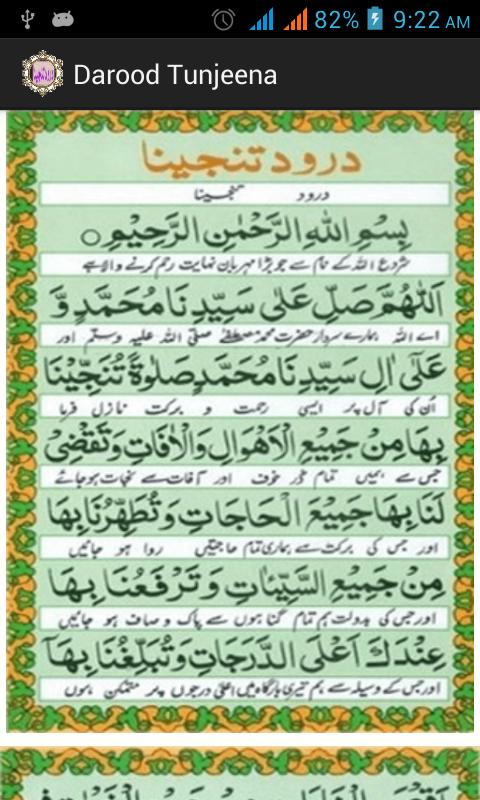 82% 9:22 AM
Darood Tunjeena
درود تنجینا
درود تنجینا
بِسْمِ اللهِ الرَّحْمٰنِ الرَّحِيْمِ ○
شروع اللہ کے نام سے جو بڑا مہربان نہایت رحم کرنے والا ہے
اَللّٰهُمَّ صَلِّ عَلٰى سَيِّدِنَا مُحَمَّدٍ وَّ
اے اللہ ہمارے سردار حضرت محمد مصطفےٰ صلی اللہ علیہ وسلم اور
عَلٰٓى اٰلِ سَيِّدِنَا مُحَمَّدٍ صَلٰوةً تُنَجِّيْنَا
اُن کی آل پر ایسی رحمت و برکت نازل فرما
بِهَا مِنْ جَمِيْعِ الْاَهْوَالِ وَالْاٰفَاتِ وَتَقْضِىْ
جس سے ہمیں تمام ڈر خوف اور آفات سے نجات ہو جائے
لَنَا بِهَا جَمِيْعَ الْحَاجَاتِ وَتُطَهِّرُنَا بِهَا
اور جس کی برکت سے ہماری تمام حاجتیں روا ہو جائیں
مِنْ جَمِيْعِ السَّيِّاٰتِ وَتَرْفَعُنَا بِهَا
اور جس کی بدولت ہم تمام گناہوں سے پاک و صاف ہو جائیں
عِنْدَكَ اَعْلَى الدَّرَجَاتِ وَتُبَلِّغُنَا بِهَآ
اور جس کے وسیلہ سے ہم تیری بارگاہ میں اعلیٰ درجوں پر متمکن ہوں